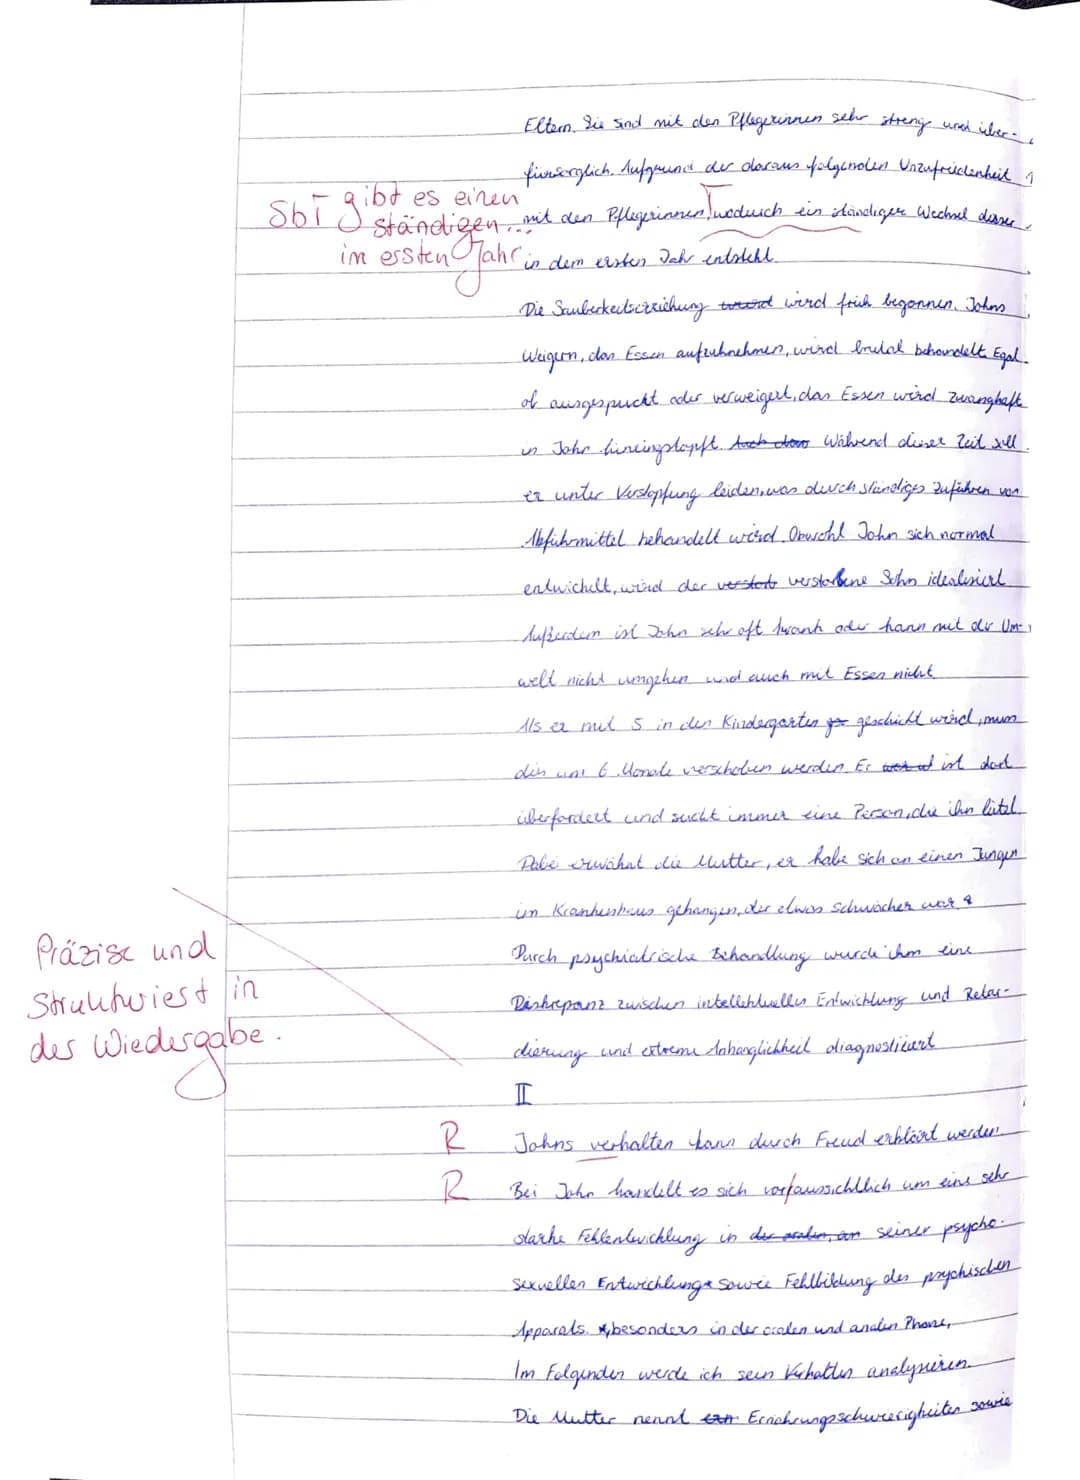 Eltern. Sie sind mit den Pflegerinnen sehr streng und über-
fürsorglich. Aufgrund der daraus folgenden Unzufriedenheit
mit den Pflegerinnen, wodurch ein ständiger Wechsel dieser
SbT gibt es einen
ständigen...
im ersten Jahr
in dem ersten Jahr entsteht.
Die Sauberkeitserziehung wird früh begonnen. Johns
Weigern, das Essen aufzuhnehmen, wird brutal behandelt. Egal
ob ausgespuckt oder verweigert, das Essen wird zwanghaft
in John hineingstopft. Während dieser Zeit soll
er unter Verstopfung leiden, was durch ständiges Zuführen von
Abführmittel behandelt wird. Obwohl John sich normal
entwickelt, wird der verstorbene Sohn idealisiert
Außerdem ist John sehr oft krank oder kann mit der Um-
welt nicht umgehen und auch mit Essen nicht
Als er mit 5 in den Kindergarten geschickt wird, muss
dies um 6 Monate verschoben werden. Er ist dort
überfordert und sucht immer eine Person, die ihn leitet.
Dabei erwähnt die Mutter, er habe sich an einen Jungen
im Krankenhaus gehangen, der etwas schwächer war.
Durch psychiatrische Behandlung wurde ihm eine
Diskrepanz zwischen intellektueller Entwicklung und Retar-
dierung und extreme Anhänglichkeit diagnostiziert
Präzise und
Strukturiert in
der Wiedergabe.
II
R Johns verhalten kann durch Freud erklärt werden.
R Bei John handelt es sich vorraussichtlich um eine sehr
starke Fehlentwicklung in seiner psycho-
sexuellen Entwicklung sowie Fehlbildung des psychischen
Apparats. *besonders in der oralen und analen Phase,
Im Folgenden werde ich sein Verhalten analysieren.
Die Mutter nennt Ernährungsschwierigkeiten sowie